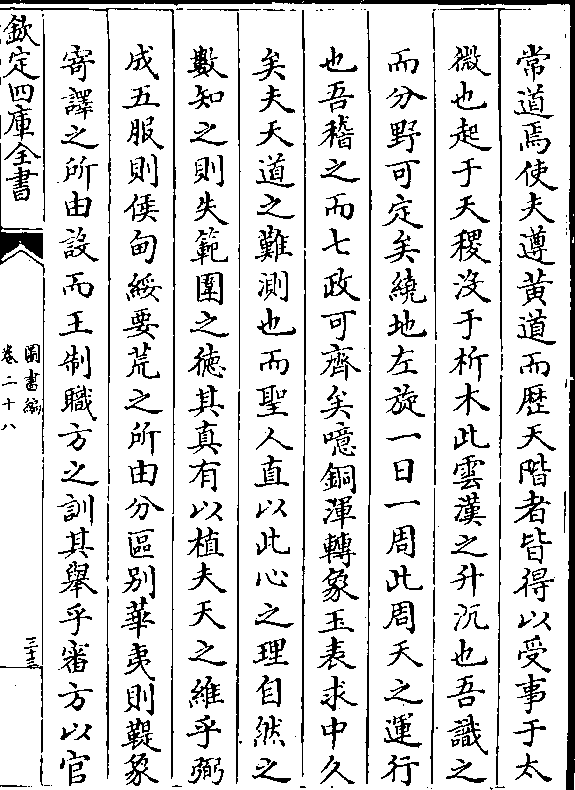 常道焉使夫遵黄道而歴天階者皆得以受事于太
微也起于天稷没于析木此雲漢之升沉也吾識之
而分野可定矣繞地左旋一日一周此周天之運行
也吾稽之而七政可齊矣噫銅渾轉象玉表求中久
矣夫天道之難測也而聖人直以此心之理自然之
數知之則失範圍之徳其真有以植夫天之維乎弼
成五服則侯甸綏要荒之所由分區别華夷則鞮象
寄譯之所由設而王制職方之訓其舉乎審方以官
欽定四庫全書
圖書編
卷二十八
三十三